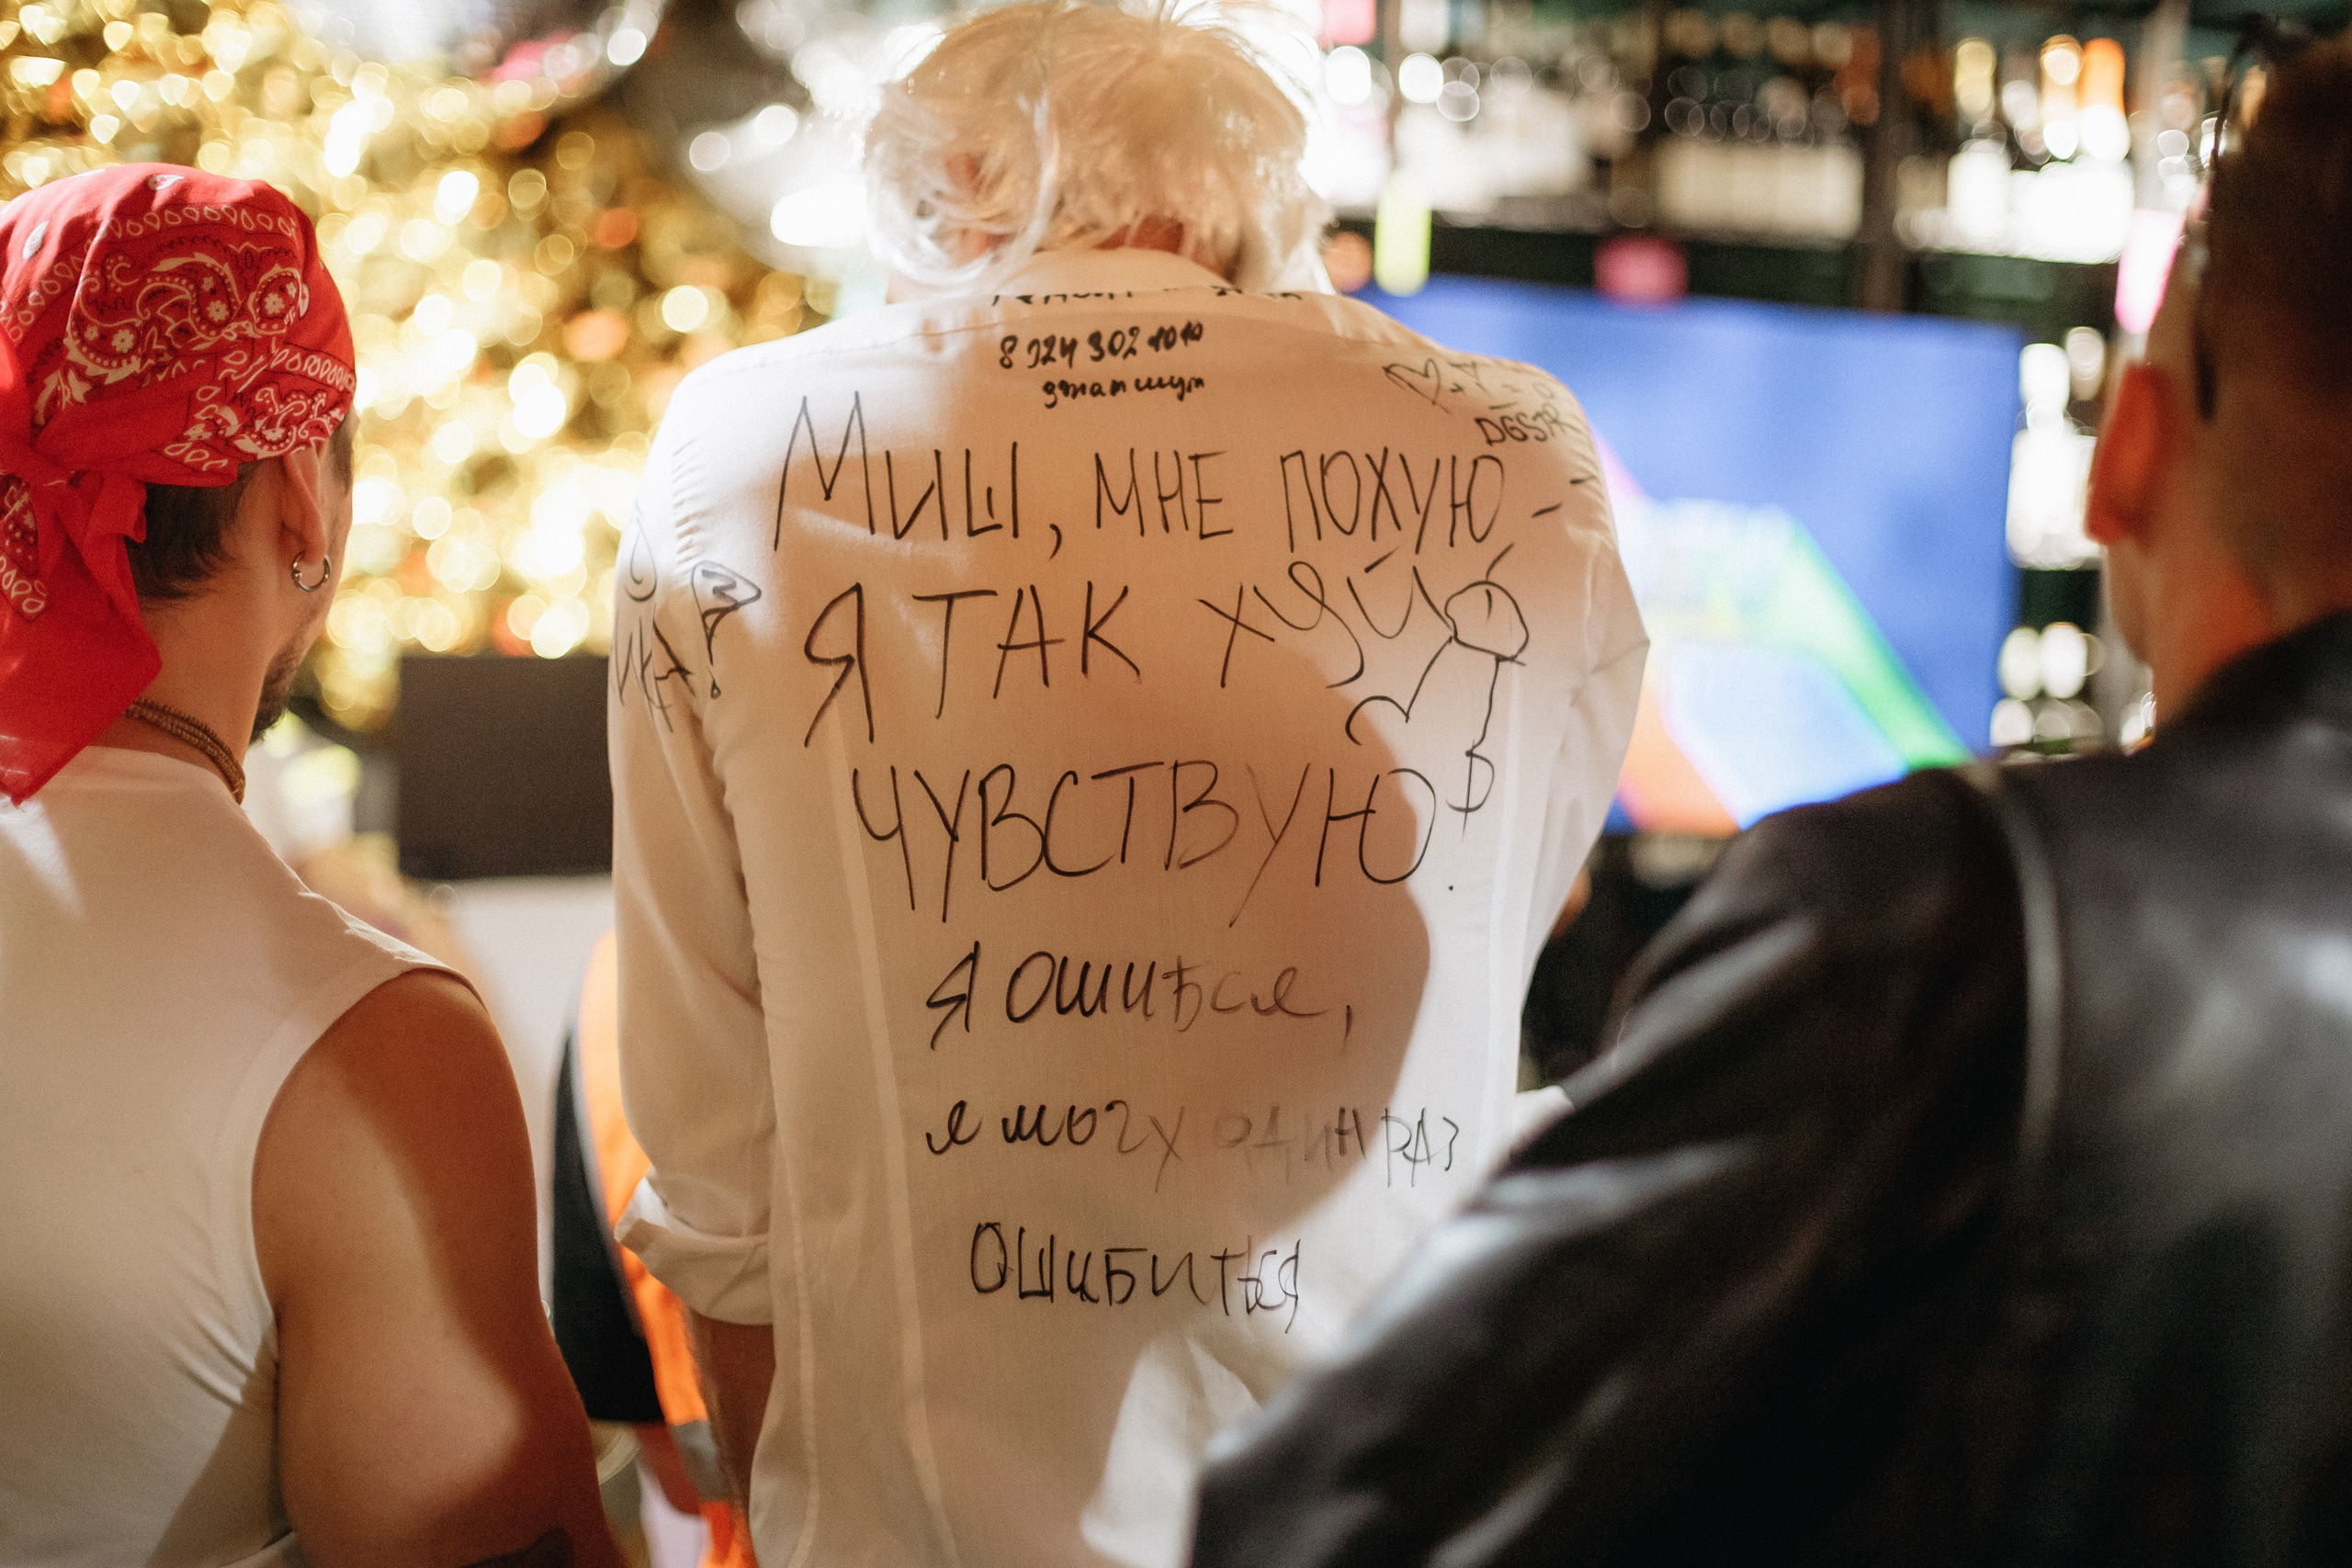 8 924 302 1010
DGSTR
МИШ, МНЕ ПОХУЮ -
Я ТАК ХУЙ
ЧУВСТВУЮ.
Я ОШИБСЯ,
я могу ОДИН РАЗ
ОШИБИТЬСЯ